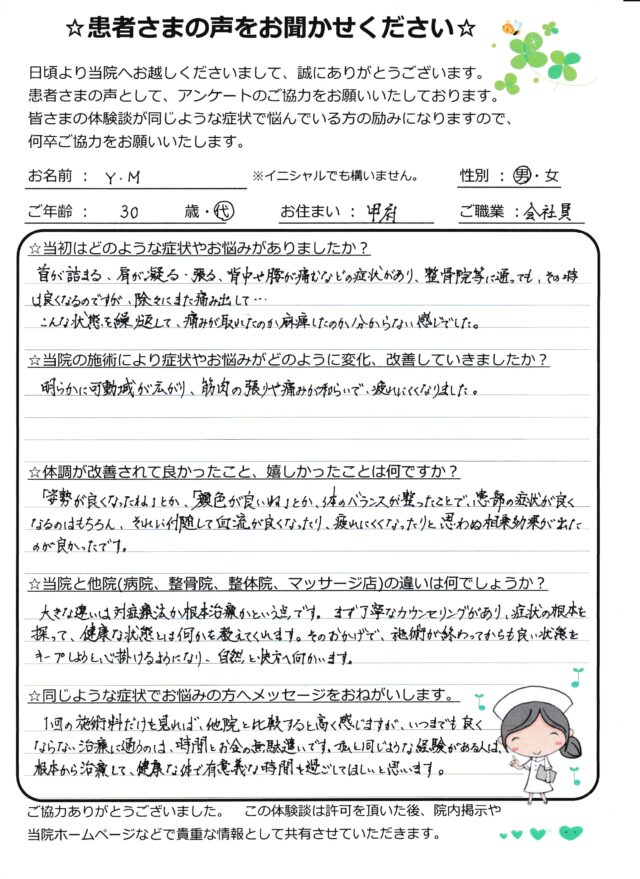 ☆患者さまの声をお聞かせください☆
日頃より当院へお越しくださいまして、誠にありがとうございます。
患者さまの声として、アンケートのご協力をお願いいたしております。
皆さまの体験談が同じような症状で悩んでいる方の励みになりますので、
何卒ご協力をお願いいたします。
お名前 : Y.M ※イニシャルでも構いません。 性別 : 男・女
ご年齢 : 30 歳・代 お住まい : 甲府 ご職業 : 会社員
☆当初はどのような症状やお悩みがありましたか?
首が詰まる、肩が凝る・張る、背中や腰が痛むなどの症状があり、整骨院等に通っても、その時
は良くなるのですが、除々にまた痛み出して…
こんな状態を繰り返して、痛みが取れたのか麻痺したのか分からない感じでした。
☆当院の施術により症状やお悩みがどのように変化、改善していきましたか?
明らかに可動域が広がり、筋肉の張りや痛みが和らいで、疲れにくくなりました。
☆体調が改善されて良かったこと、嬉しかったことは何ですか?
「姿勢が良くなったね」とか、「顔色が良いね」とか、体のバランスが整ったことで、患部の症状が良く
なるのはもちろん、それに付随して血流が良くなったり、疲れにくくなったりと思わぬ相乗効果が出た
のが良かったです。
☆当院と他院(病院、整骨院、整体院、マッサージ店)の違いは何でしょうか?
大きな違いは対症療法か根本治療かという点です。まず丁寧なカウンセリングがあり、症状の根本を
探って、健康な状態とは何かを教えてくれます。そのおかげで、施術が終わってからも良い状態を
キープしようと心掛けるようになり、自然と快方へ向かいます。
☆同じような症状でお悩みの方へメッセージをおねがいします。
1回の施術料だけを見れば、他院と比較すると高く感じますが、いつまでも良く
ならない治療に通うのは、時間とお金の無駄遣いです。私と同じような経験がある人は、
根本から治療して、健康な体で有意義な時間を過ごしてほしいと思います。
ご協力ありがとうございました。 この体験談は許可を頂いた後、院内掲示や
当院ホームページなどで貴重な情報として共有させていただきます。